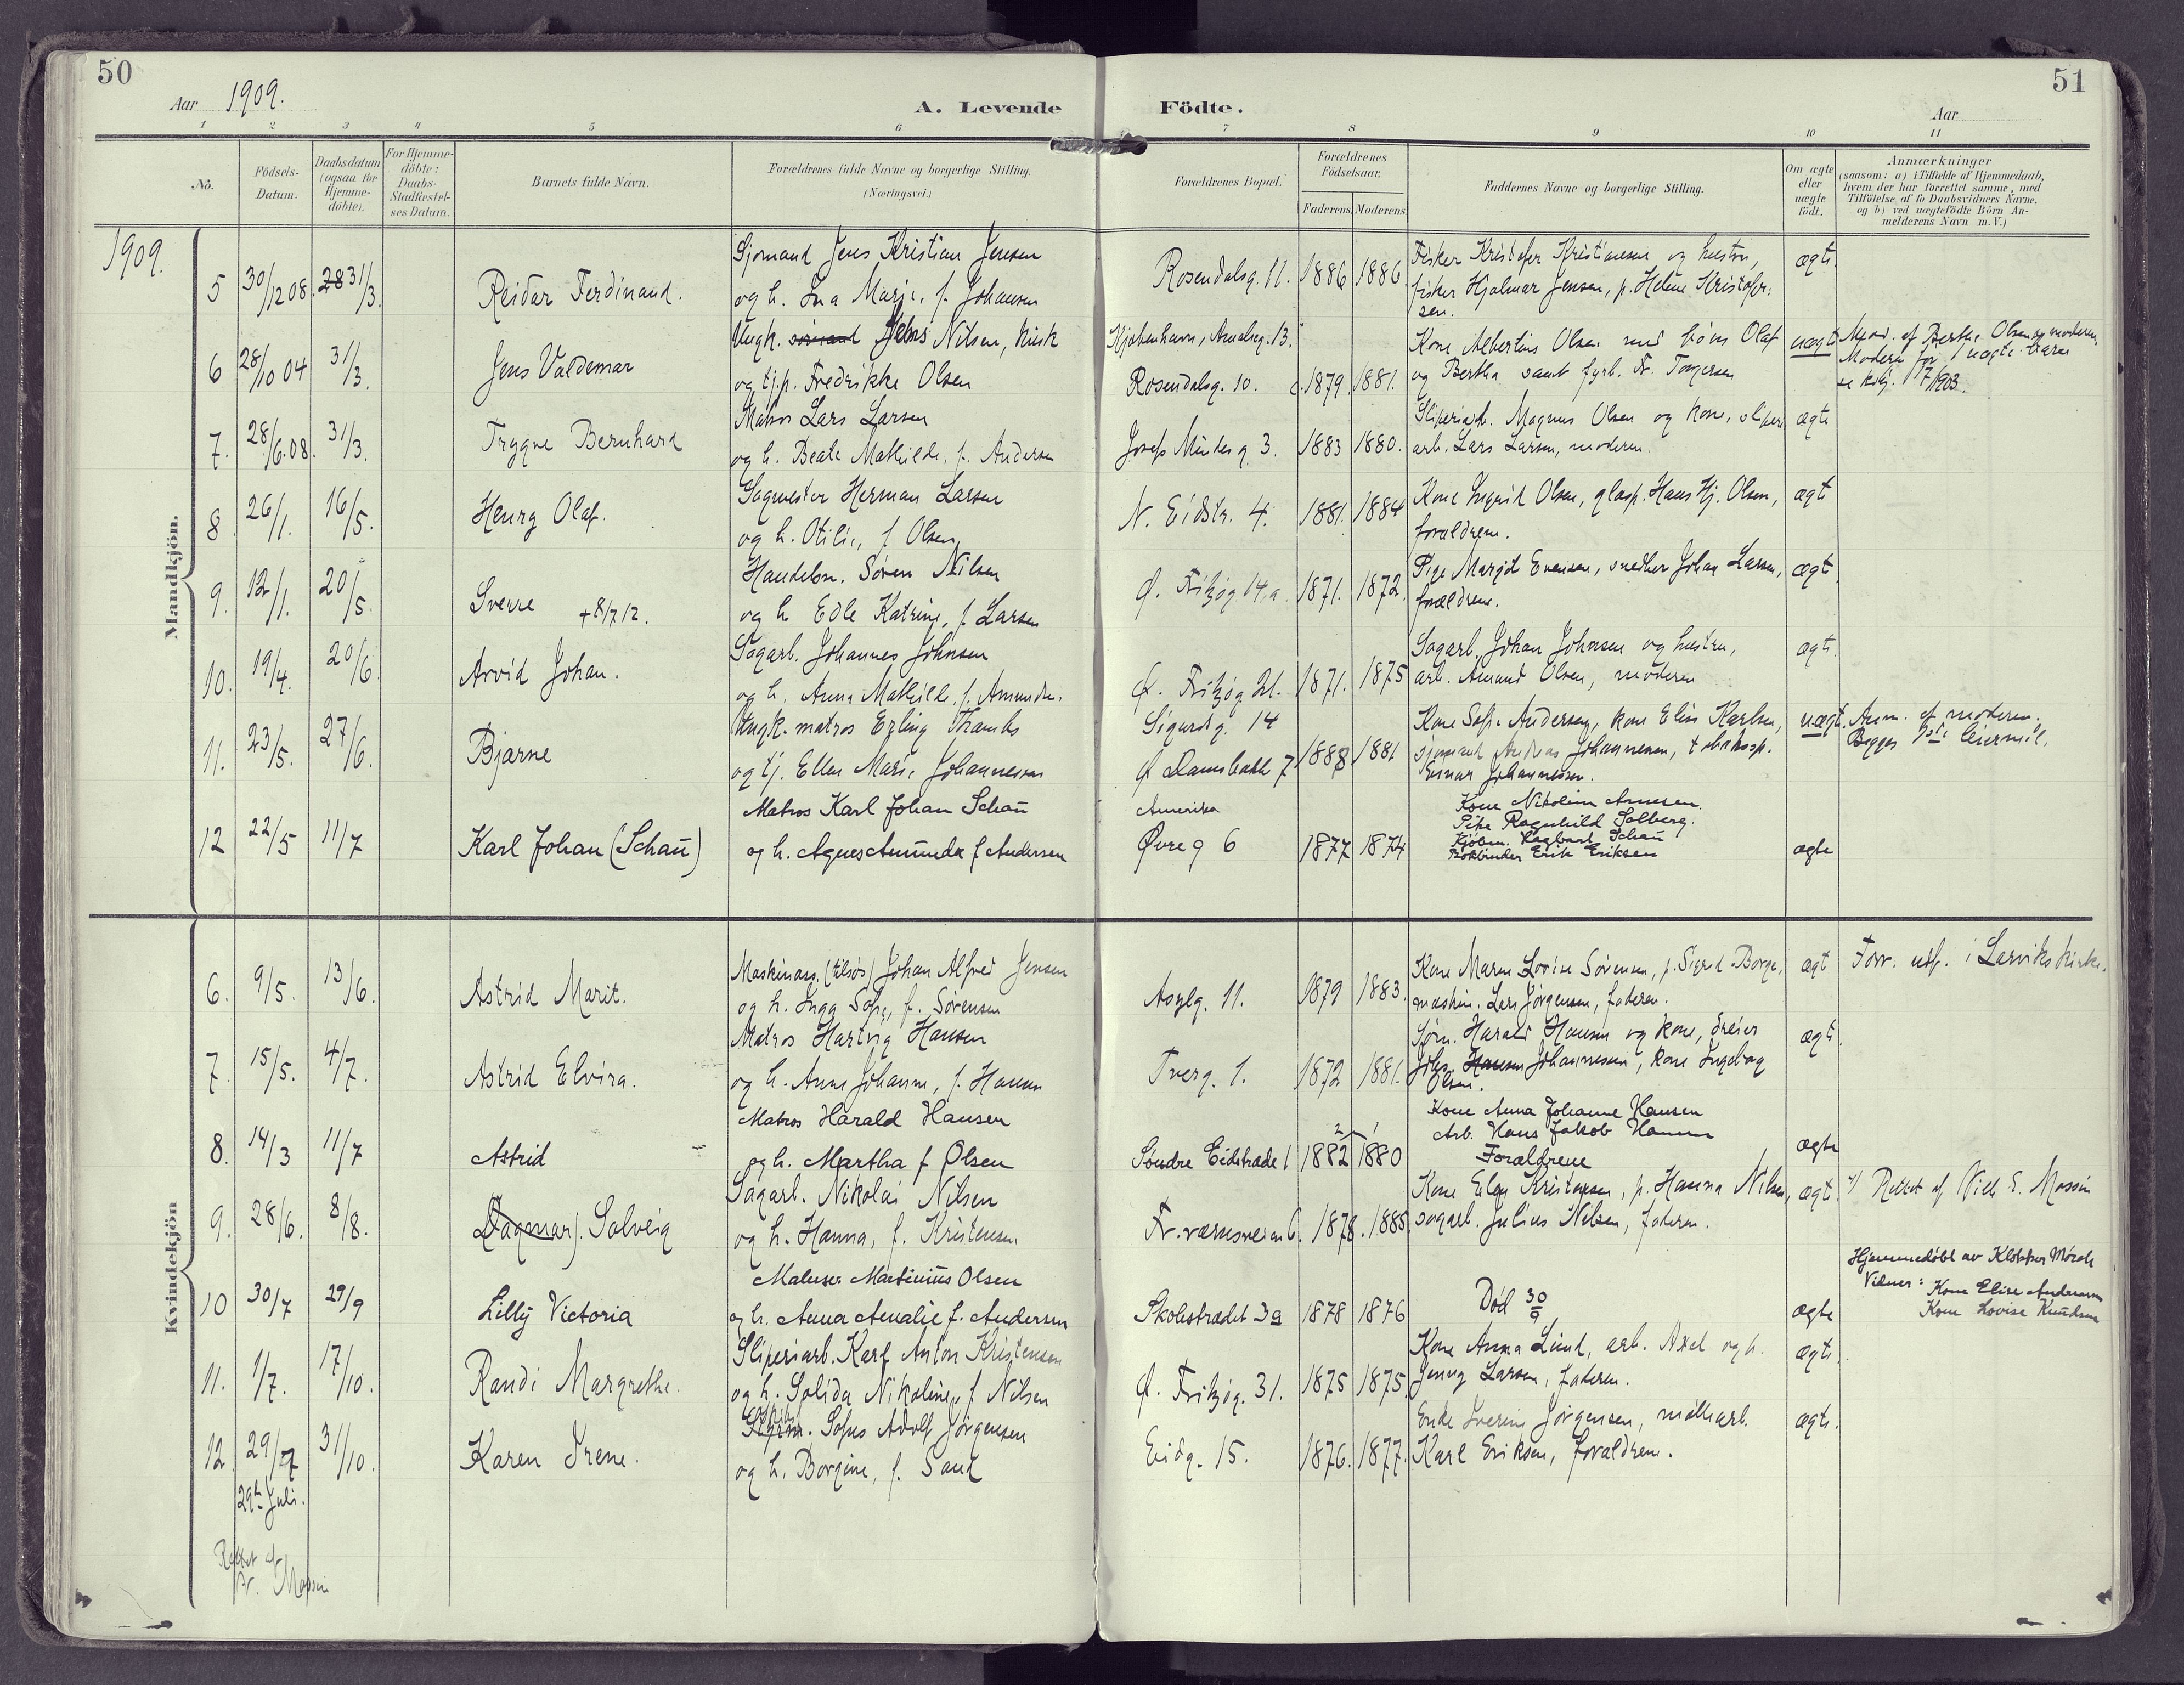 50
Aar 1909.
A. Levende Födte.
51
Aar
1 2 3 4 5 6 7 8 9 10 11
No.
Födsels-Datum.
Daabsdatum (ogsaa for Hjemme-döbte).
For Hjemme-döbte: Daabs-Stadfæstel-ses Datum.
Barnets fulde Navn.
Forældrenes fulde Navne og borgerlige Stilling.
(Næringsvei.)
Forældrenes Bopæl.
Forældrenes Födselsaar.
Faderens. Moderens.
Faddernes Navne og borgerlige Stilling.
Om ægte eller uægte födt.
Anmærkninger
(saasom: a) i Tilfælde af Hjemmedaab,
hvem der har forrettet samme, med
Tilföielse af to Daabsvidners Navne.
og b) ved uægtefödte Börn An-
melderens Navn m. V.)
1909.
Mandkjön.
Sjomand Jens Kristian Jensen
5 30/12 08. 28 31/3. Reidar Ferdinand.
og h. Ina Marje, f. Johansen
Rosendalsg. 11. 1886 1886.
Fisker Kristofer Kristiansen og hustru,
fisker Hjalmar Jensen, p. Helene Kristofer-
sen.
ægte.
Ungk. Jens Nilsen,
6 28/10 04 31/3. Jens Valdemar
og tj.p. Fredrikke Olsen
Kjøbenhavn, 13.
Rosendalsg. 10. c. 1879. 1881.
Kone Albertine Olsen med Olaf
og Bertha samt fyrb. Fr. Torgersen
uægte
af Berthe Olsen og moderen.
Moderen før 1 uægte barn
se kbg. 1903.
Matros Lars Larsen
7. 28/6.08. 31/3. Trygve Bernhard
og h. Beate Mathilde, f. Andersen
Josefs Mindes g. 3. 1883 1880.
Sliperiarb. Magnus Olsen og kone, sliperi
arb. Lars Larsen, moderen.
ægte
Sagmester Herman Larsen
8. 26/1. 16/5. Henry Olaf.
og h. Otilie, f. Olsen.
N. Eidstr. 4. 1881. 1884
Kone Ingrid Olsen, glasp. Hans Hj. Olsen,
forældrene.
ægte
Handelsm. Søren Nilsen
9. 12/1. 20/5. Sverre +8/7 12.
og h. Edle Katrine, f. Larsen
Ø. Fritzøg 14.a 1871. 1872.
Pige Margit Evensen, snedker Johan Larsen,
forældrene.
ægte.
Sagarb. Johannes Johnsen
10. 19/4. 20/6. Arvid Johan.
og h. Anna Mathilde, f. Amundsen.
Ø. Fritzøg 21. 1871. 1875
Sagarb. Johan Johnsen og hustru,
arb. Amund Olsen, moderen
ægte.
Ungk. matros Erling Thambs
11. 23/5. 27/6. Bjarne
og tj. Ellen Marie Johannesen
Sigurdg. 14
Ø Dambakk 7 1888 1881
Kone Sofie Andersen, kone Elise Karlsen,
sjømand Andreas Johannesen,
Einar Johannessen.
uægte. Anm. af moderen.
Begges 1ste leiermål.
Matros Karl Johan Schaü
12 22/5 11/7 Karl Johan (Schaü)
og h. Agnes Amunda f Andersen
Amerika
Øvre g 6 1877 1874
Kone Nikoline Arnesen.
Pike Ragnhild Solberg.
Kjøbm. Hagbart Schaü
Bokbinder Erik Eriksen
ægte
Kvindekjön
Maskinass. (tilsøs) Johan Alfred Jensen
6. 9/5. 13/6. Astrid Marit.
og h. Inga Sofie, f. Sørensen
Asylg. 11. 1879 1883.
Kone Maren Lovise Sørensen, p. Sigrid Borge,
maskin. Lars Jørgensen, faderen.
ægte
Forr. udf. i Larviks kirke.
Matros Hartvig Hansen
7. 15/5. 4/7. Astrid Elvira.
og h. Anna Johanne, f. Hansen
Tverg. 1. 1872 1881.
Sjøm. Harald Hansen og kone, dreier
Johs. Hansen Johannessen, kone Ingeborg
Olsen.
ægte.
Matros Harald Hansen
8. 14/3 11/7 Astrid
og h. Martha f Olsen
Søndre Eidstræde 1 1882 1880
2 1
Kone Anna Johanne Hansen
Arb. Hans Jakob Hansen
Forældrene
ægte
Sagarb. Nikolai Nilsen
9. 28/6. 8/8. Dagmar). Solveig
og h. Hanna, f. Kristensen
Fr.værnsveien 6. 1878. 1885.
Kone Elen Kristensen, p. Hanna Nilsen,
sagarb. Julius Nilsen, faderen.
ægte
Rettet af E. Mossin
Matros Martinius Olsen
10 30/7 29/9 Lilly Victoria
og h. Anna Amalie f. Andersen
Skolestrædet 3a 1878 1876
Død 30/9
ægte
Hjemmedøbt av Klokker Mørch
Vidner: Kone Elise Andersen
Kone Lovise Knüdsen
Sliperiarb. Karl Anton Kristensen
11. 1/7. 17/10. Randi Margrethe.
og h. Solida Nikoline, f Nilsen
Ø. Fritzøg. 31. 1875 1875
Kone Anna Lund, arb. Axel og h.
Jenny Larsen, faderen.
ægte.
Sofus Adolf Jørgensen
12 29/7 31/10. Karen Irene.
og h. Borgine, f. Sand
29de Juli.
Eidg. 15. 1876. 1877.
Enke Iverine Jørgensen, møllearb.
Karl Eriksen, forældrene.
ægte.
Rettet af
Mossin